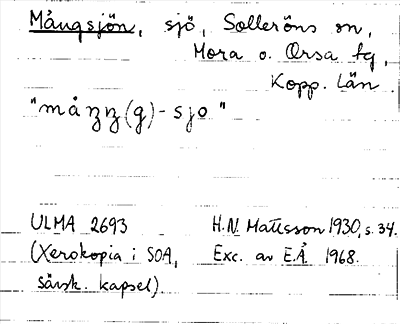 Mångsjön, sjö, Solleröns sn,
Mora o. Orsa tg,
Kopp. län
"måŋŋ(g)-sjo"
ULMA 2693 H.N. Mattsson 1930, s. 34.
(Xerokopia i SOA, Exc. av E.Å. 1968.
särsk. kapsel)